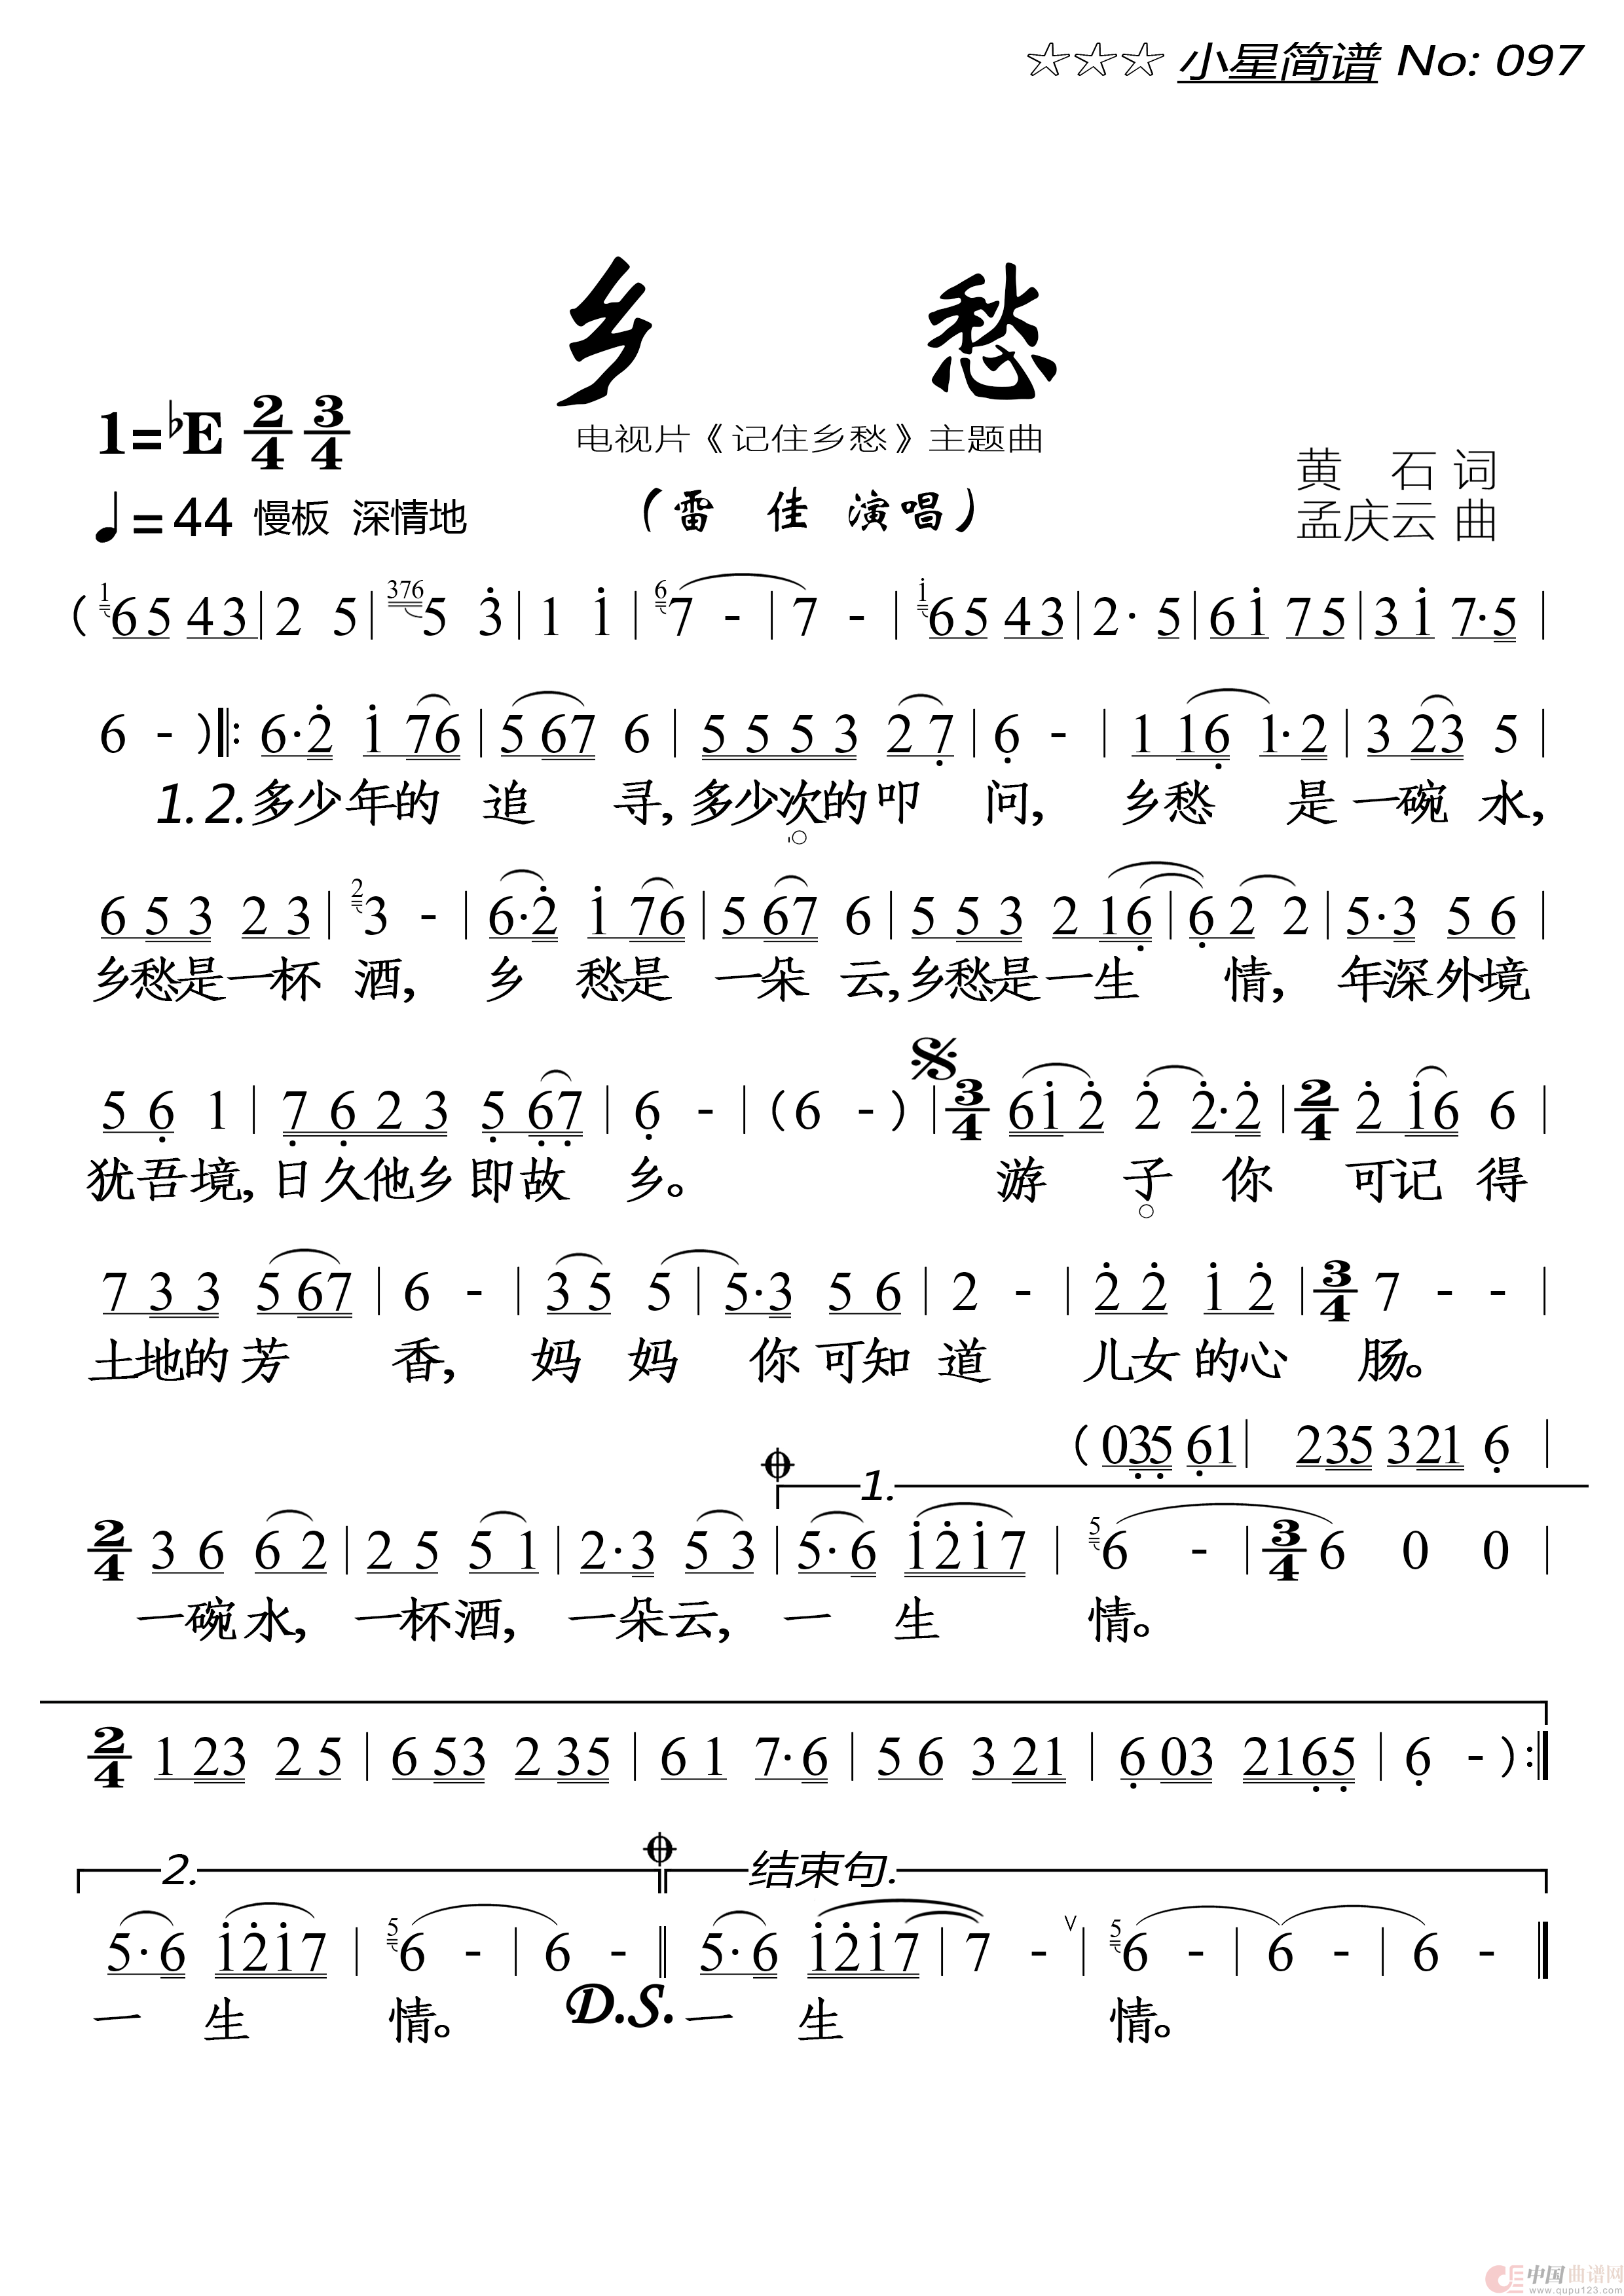 ☆☆☆ 小星简谱 No: 097
乡 愁
1=♭E 2/4 3/4
电视片《记住乡愁》主题曲
黄 石 词
♩=44 慢板 深情地
(雷 佳 演唱)
孟庆云 曲
( 1 65 43 | 2 5 | 376 5 3̇ | 1 1̇ | 6 7 - | 7 - | 1̇ 65 43 | 2· 5 | 61̇ 75 | 31̇ 7·5 |
6 - ) |: 6·2̇ 1̇ 76 | 5 67 6 | 5 5 5 3 2 7̣ | 6̣ - | 1 16̣ 1·2 | 3 23 5 |
1.2.多少年的 追 寻,多少次的叩 问, 乡愁 是一碗 水,
6 5 3 2 3 | 2 3 - | 6·2̇ 1̇ 76 | 5 67 6 | 5 5 3 2 16̣ | 6̣ 2 2 | 5·3 5 6 |
乡愁是一杯 酒, 乡 愁是 一朵 云,乡愁是一生 情, 年深外境
5 6̣ 1 | 7̣ 6̣ 2 3 5̣ 6̣7̣ | 6̣ - | (6 - ) | 3/4 61̇ 2̇ 2̇ 2̇·2̇ | 2/4 2̇ 1̇6 6 |
犹吾境,日久他乡即故 乡。 游 子 你 可记 得
7 3 3 5 67 | 6 - | 3 5 5 | 5·3 5 6 | 2 - | 2̇ 2̇ 1̇ 2̇ | 3/4 7 - - |
土地的芳 香, 妈 妈 你可知 道 儿女的心 肠。
(03̣5̣ 6̣1 | 235 321 6̣ |
1.
2/4 3 6 6 2 | 2 5 5 1 | 2·3 5 3 | 5·6 1̇2̇1̇7 | 5 6 - | 3/4 6 0 0 |
一碗水, 一杯酒, 一朵云, 一 生 情。
2/4 1 23 2 5 | 6 53 2 35 | 6 1 7·6 | 5 6 3 21 | 6̣ 03 216̣5̣ | 6̣ - ) :|
2. 结束句.
5·6 1̇2̇1̇7 | 5 6 - | 6 - || 5·6 1̇2̇1̇7 | 7 - ∨ | 5 6 - | 6 - | 6 - ||
一 生 情。 D.S. 一 生 情。
中国曲谱网
www.qupu123.com